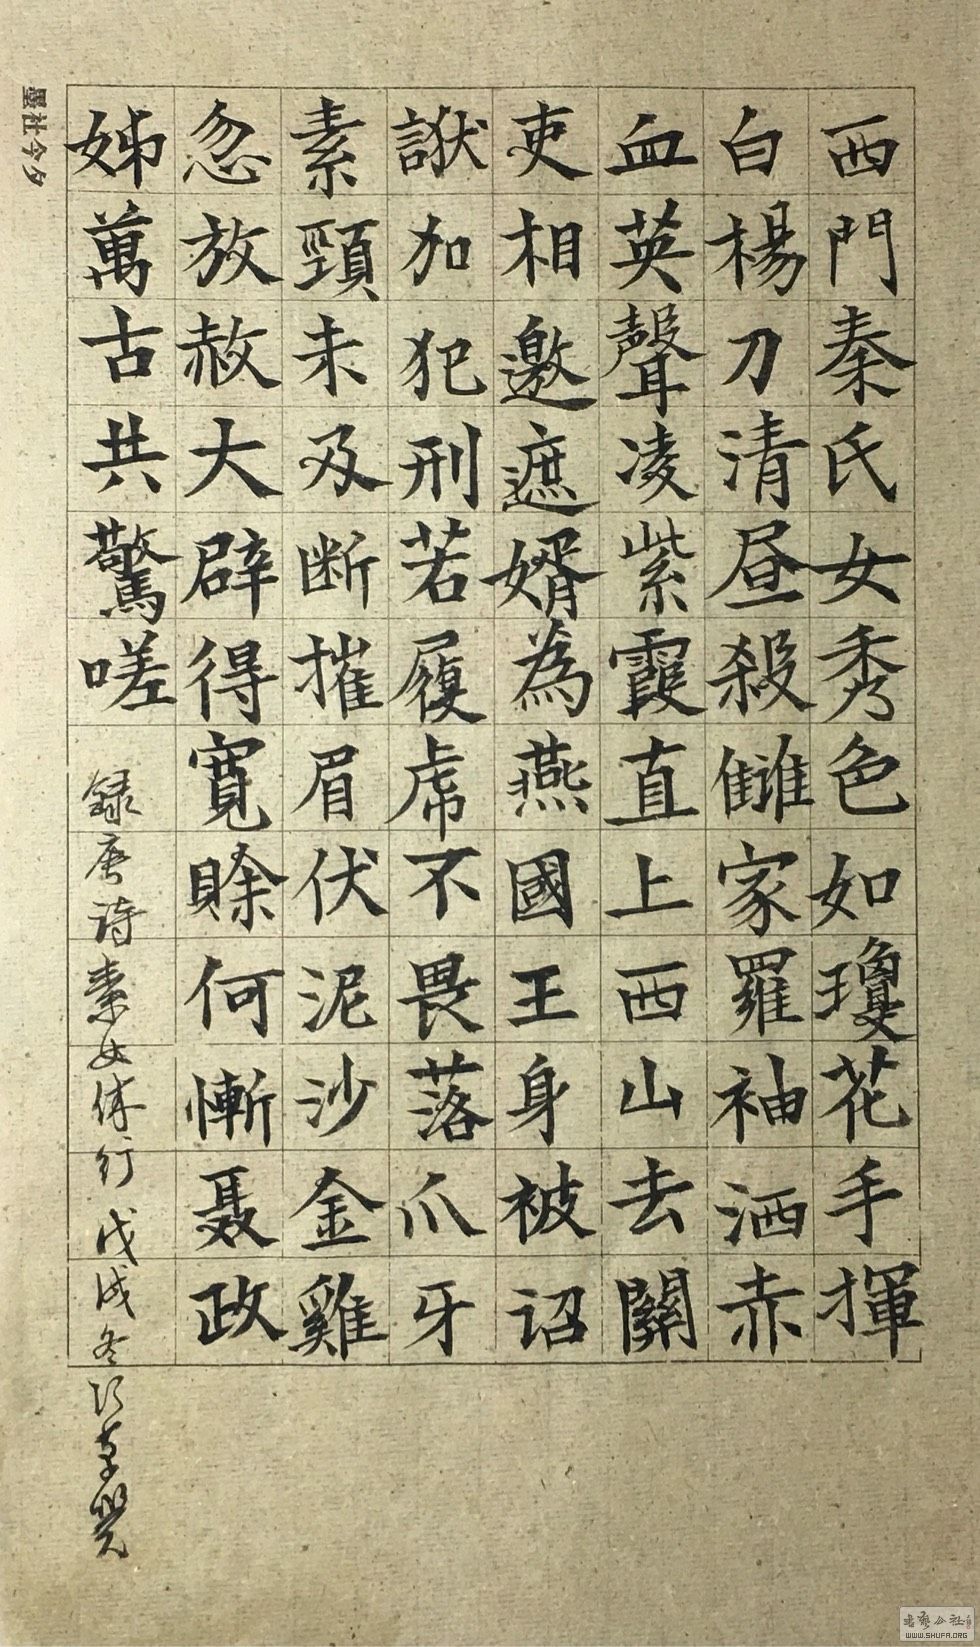 西門秦氏女秀色如瓊花手揮
白楊刀清昼殺讎家羅袖洒赤
血英聲凌紫霞直上西山去關
吏相邀遮婿為燕國王身被詔
獄加犯刑若履虎不畏落爪牙
素頸未及断摧眉伏泥沙金雞
忽放赦大辟得寬賒何慚聶政
姊萬古共驚嗟 録唐诗秦女休行 戊戌冬
墨社今夕
書藝公社
WWW.SHUFA.ORG